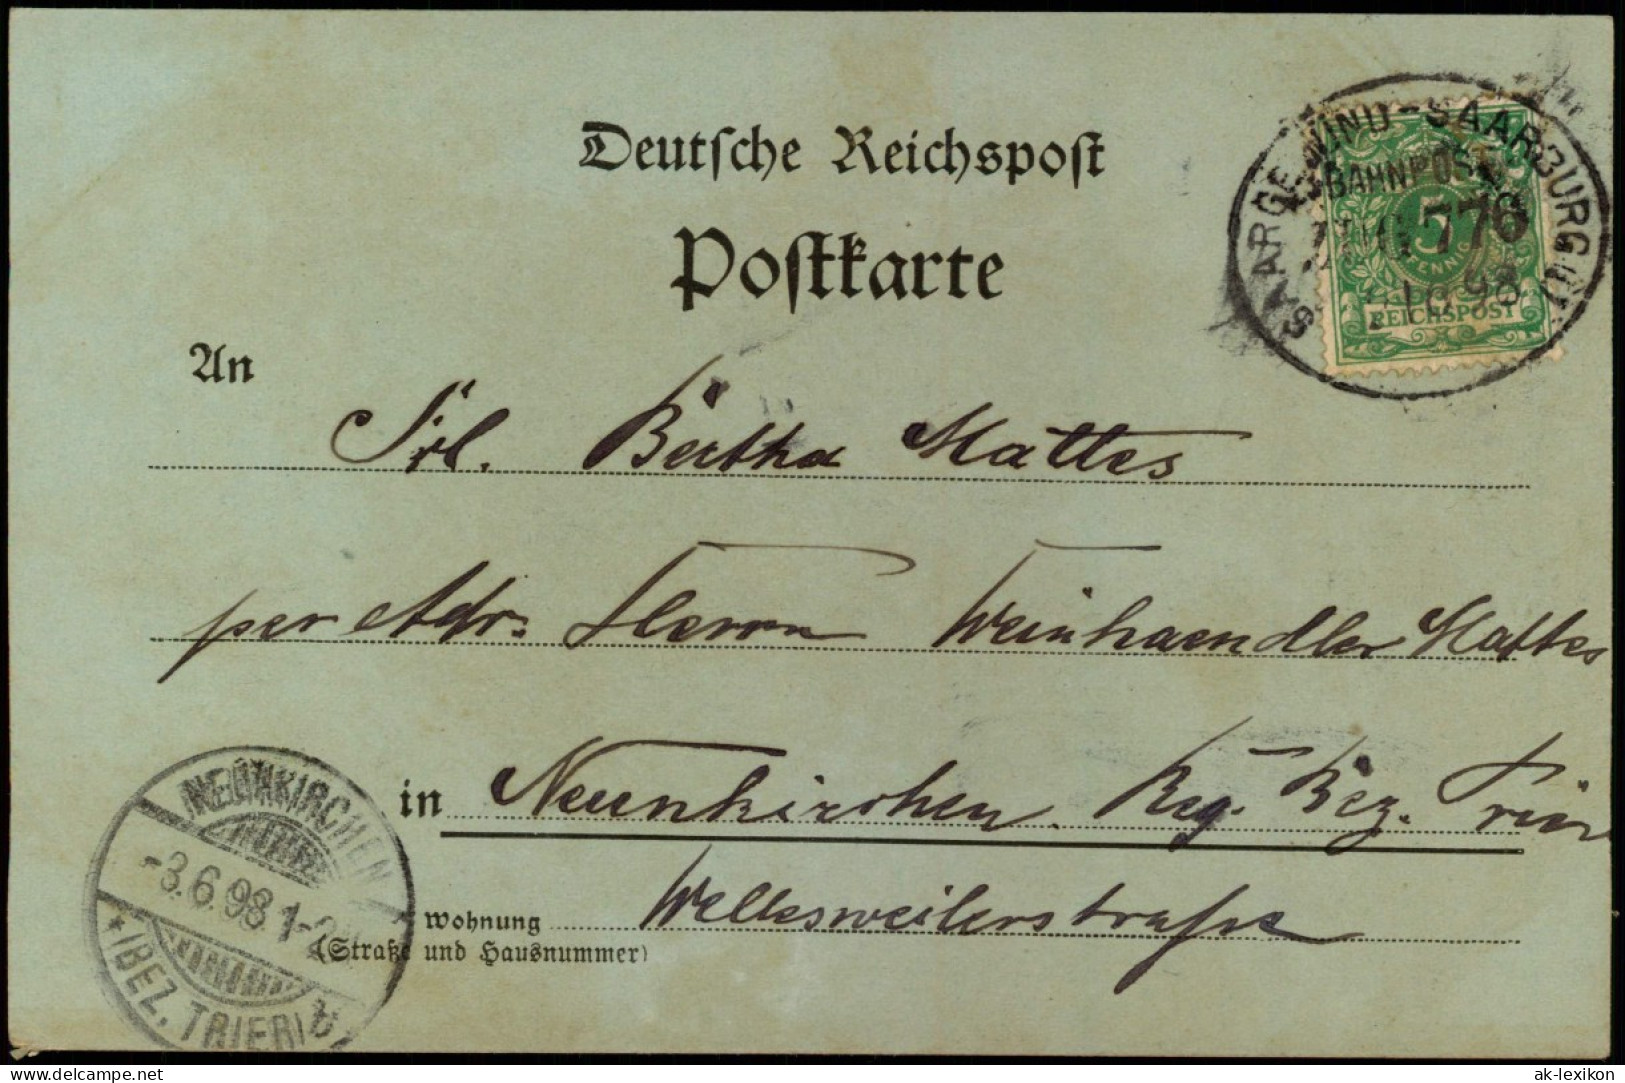 Deutsche Reichspost
Postkarte
SAARGEMÜND-SAARBURG
BAHNPOST
ZUG 776
98
5
PFENNIG
REICHSPOST
An
Frl. Bertha Mattes
per Adr. Herrn Weinhaendler Mattes
in Neunkirchen. Reg. Bez. Trier
Wohnung Wellesweilerstraße
(Straße und Hausnummer)
NEUNKIRCHEN
-3.6.98 1-2
* (BEZ. TRIER) b
www.delcampe.net
ak-lexikon